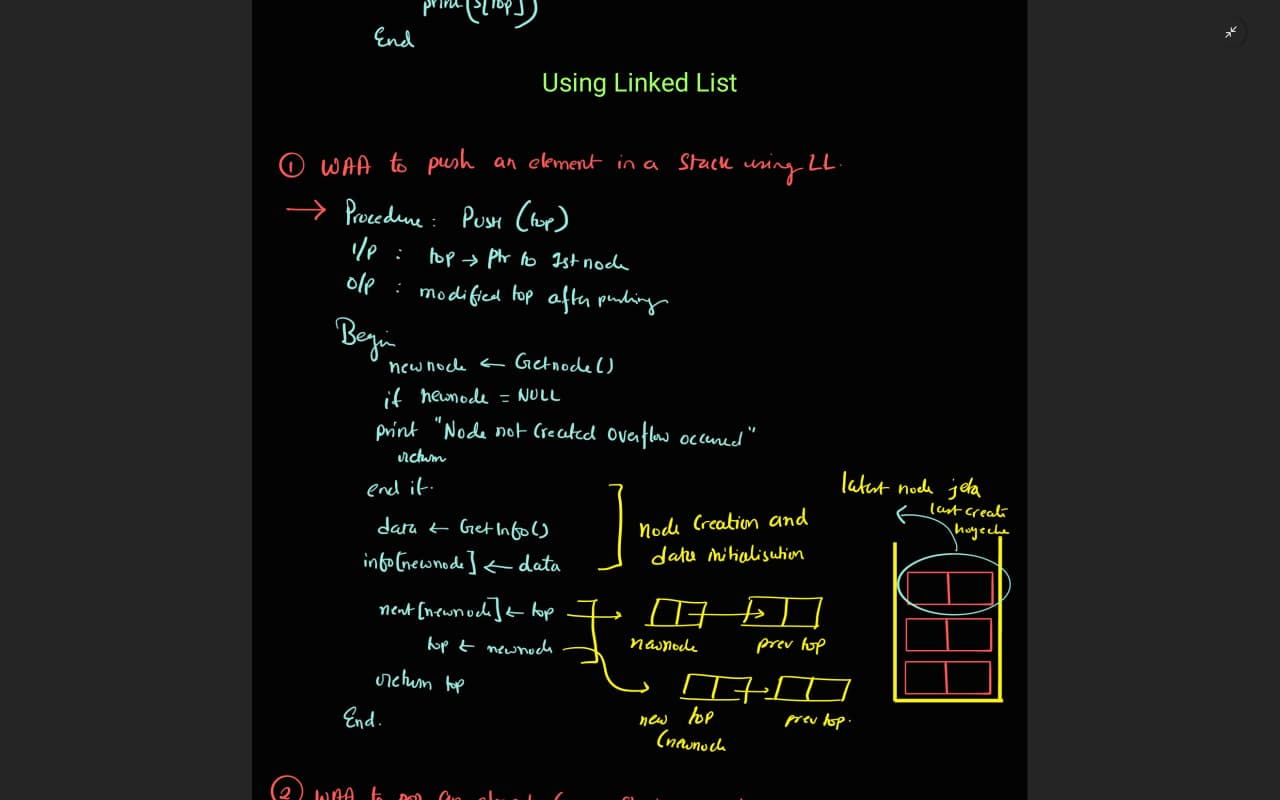 print(S[top])
End
Using Linked List
① WAA to push an element in a Stack using LL.
→ Procedure: PUSH (top)
I/P : top → Ptr to 1st node
O/P : modified top after pushing
Begin
newnode ← Getnode()
if newnode = NULL
print "Node not Created Overflow occured"
return
end if.
data ← GetInfo()
info[newnode] ← data
Node Creation and
data initialisation
next[newnode] ← top
newnode prev top
top ← newnode
return top
new top prev top.
(newnode
End.
latest node jeta
last create
hoyeche
② WAA to pop an element